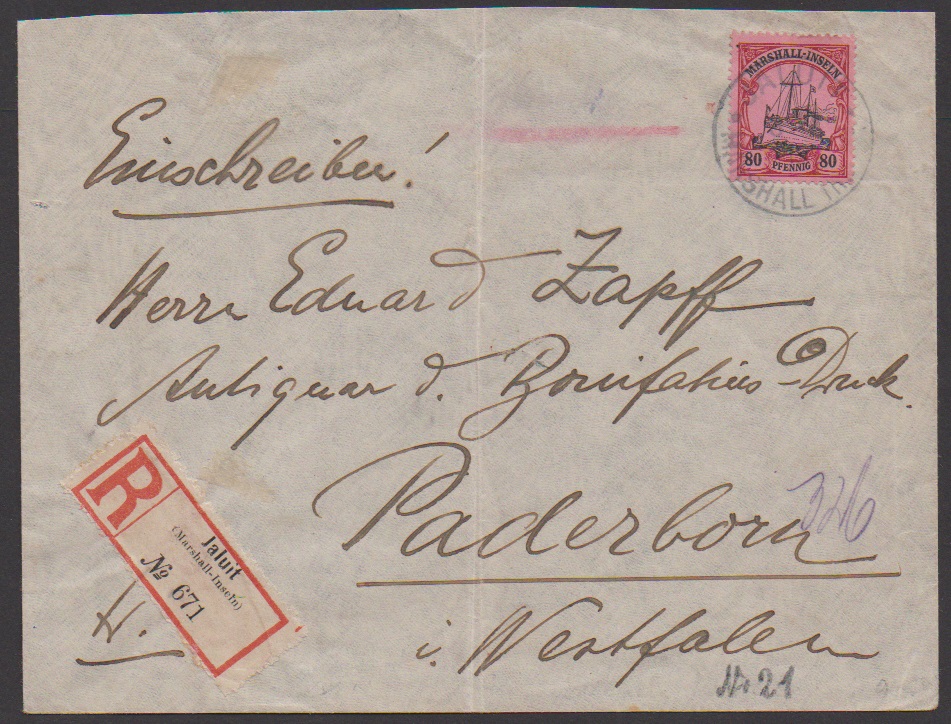 MARSHALL-INSELN
80 PFENNIG 80
JALUIT
MARSHALL IN
Einschreiben!
Herrn Eduard Zapff
Antiquar d. Bonifatius-Druck.
Paderborn
i. Westfalen
326
R
Jaluit
(Marshall-Inseln)
№ 671
No 21